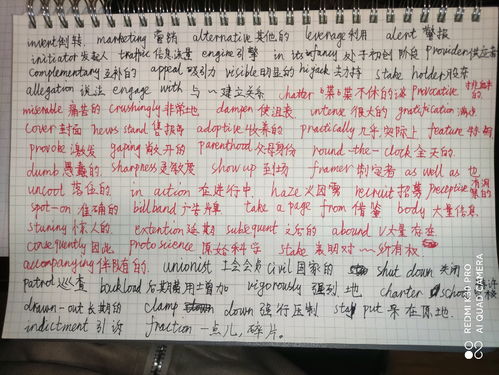 invent 创造 marketing 营销 alternative 其他的 leverage 利用 alert 警报
initiator 发起人 traffic 信息流量 engine 引擎 in its infancy 处于初创阶段 provider 供应者
complementary 互补的 appeal 吸引力 visible 明显的 hijack 劫持 stake holder 股东
allegation 说法 engage with 与~建立关系 chatter 喋喋不休的谈 provocative
miserable 痛苦的 crushingly 非常地 dampen 使沮丧 intense 很大的 gratification 满足
cover 封面 news stand 售报亭 adoptive 收养的 practically 几乎,实际上 feature 特色
provoke 激发 gaping 敞开的 parenthood 父母身份 round-the-clock 全天的.
dumb 愚蠢的. sharpness 灵敏度 show up 到场 framer 制定者 as well as 也
uncool 落伍的 in action 在进行中. haze 火烟雾 recruit 招募 perceptive
spot-on 准确的 billband 广告牌 take a page from 借鉴 body 大量信息
stuning 惊人的. extention 延期 subsequent 之后的 abound v.大量存在
consequently 因此 proto science 原始科学 stake 表明对~所有权
accompanying 伴随的. unionist 工会会员 civil 国家的 shut down 关闭
patrol 巡查 backload 后期费用才增加 vigorously 强烈地 charter school
drawn-out 长期的 clamp down 强行压制 stay put 呆在原地.
indictment 引诉 fraction 一点儿,碎片.
REDMI K30 PRO
AI QUAD CAMERA